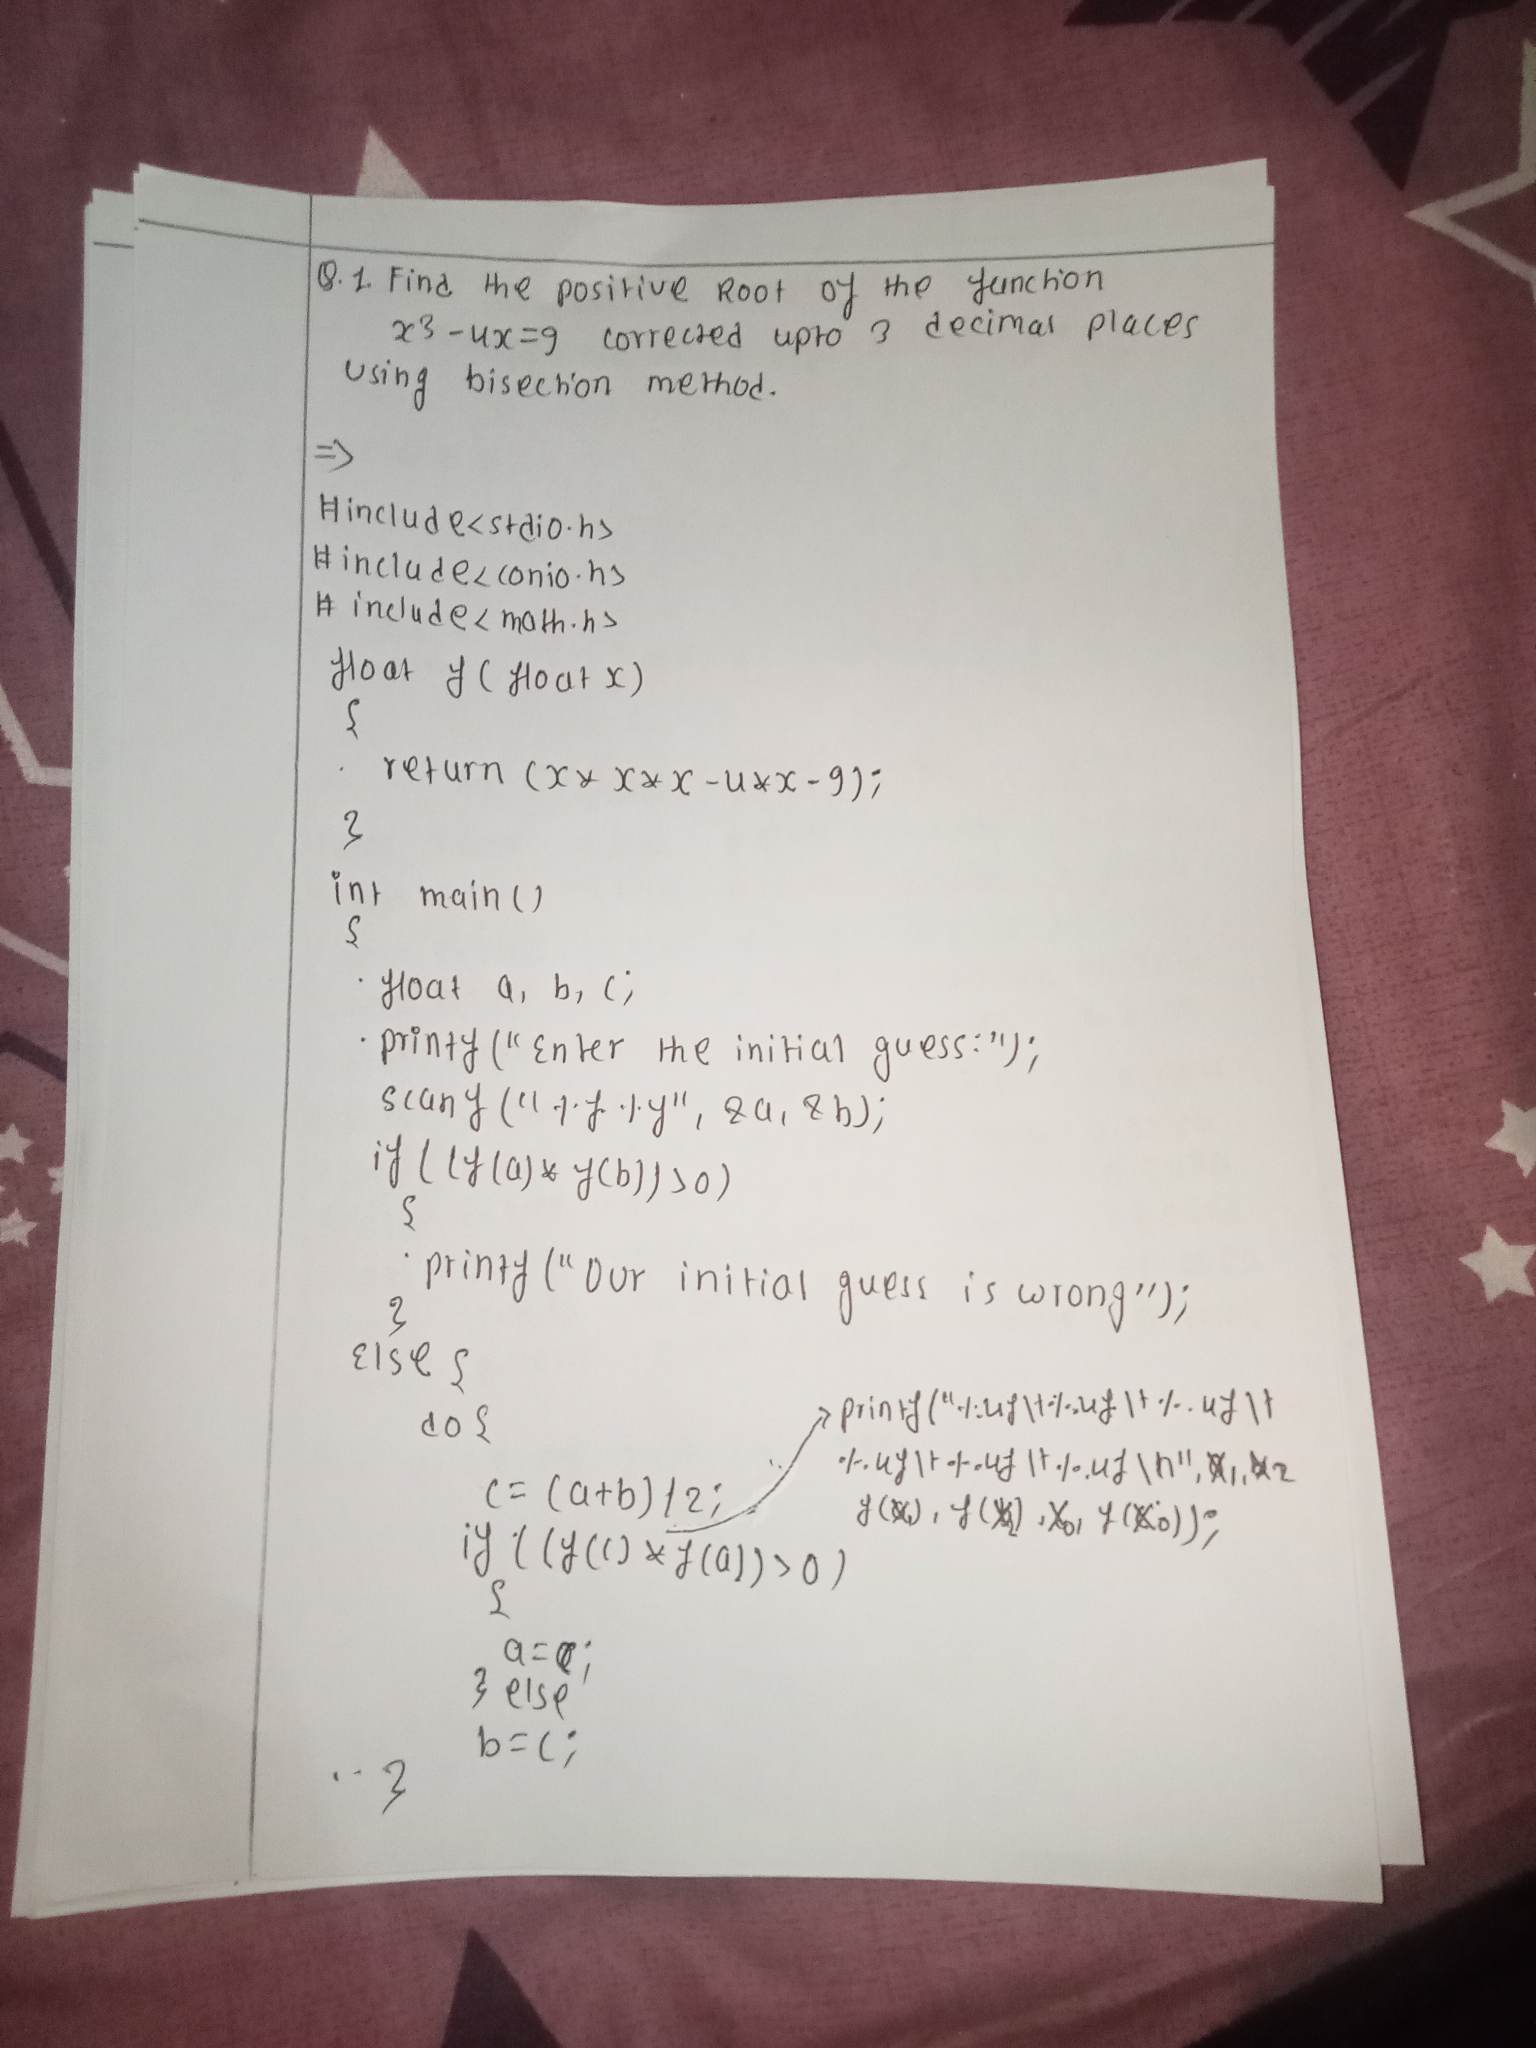 Q.1. Find the positive Root of the function
x3-4x=9 corrected upto 3 decimal places
using bisection method.
=>
#include<stdio.h>
#include<conio.h>
# include<math.h>
float f(float x)
{
return (x*x*x-4*x-9);
}
int main()
{
float a, b, c;
printf("Enter the initial guess:");
scanf("%f%f", &a, &b);
if((f(a)*f(b))>0)
{
printf("Our initial guess is wrong");
}
Else {
do {
c=(a+b)/2;
printf("%.4f\t%.4f\t%.4f\t
%.4f\t%.4f\t%.4f\n", x1, x2
f(x1), f(x2), x0, f(x0));
if((f(c)*f(a))>0)
{
a=c;
} else
b=c;
}